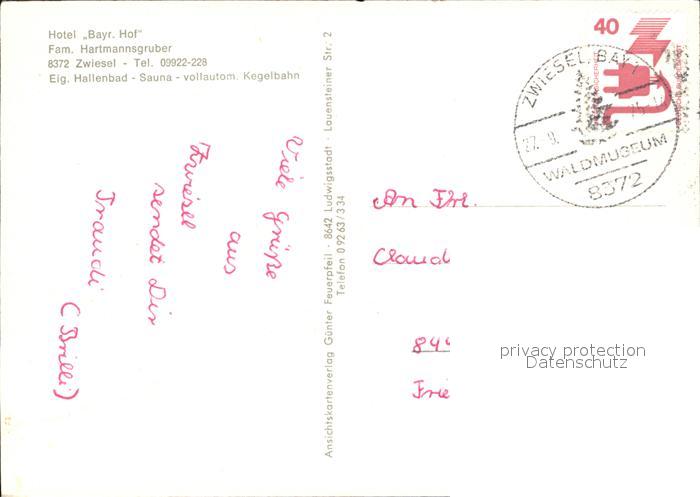 Hotel „Bayr. Hof"
Fam. Hartmannsgruber
8372 Zwiesel - Tel. 09922-228
Eig. Hallenbad - Sauna - vollautom. Kegelbahn
Viele Grüße
aus
Zwiesel
sendet Dir
Traudi
(Brilli)
Ansichtskartenverlag Günter Feuerpfeil · 8642 Ludwigsstadt · Lauensteiner Str. 2
Telefon 09263/334
40
ZWIESEL, BAY 1
27. 8.
WALDMUSEUM
8372
An Frl.
Claud
84
Frie
privacy protection
Datenschutz